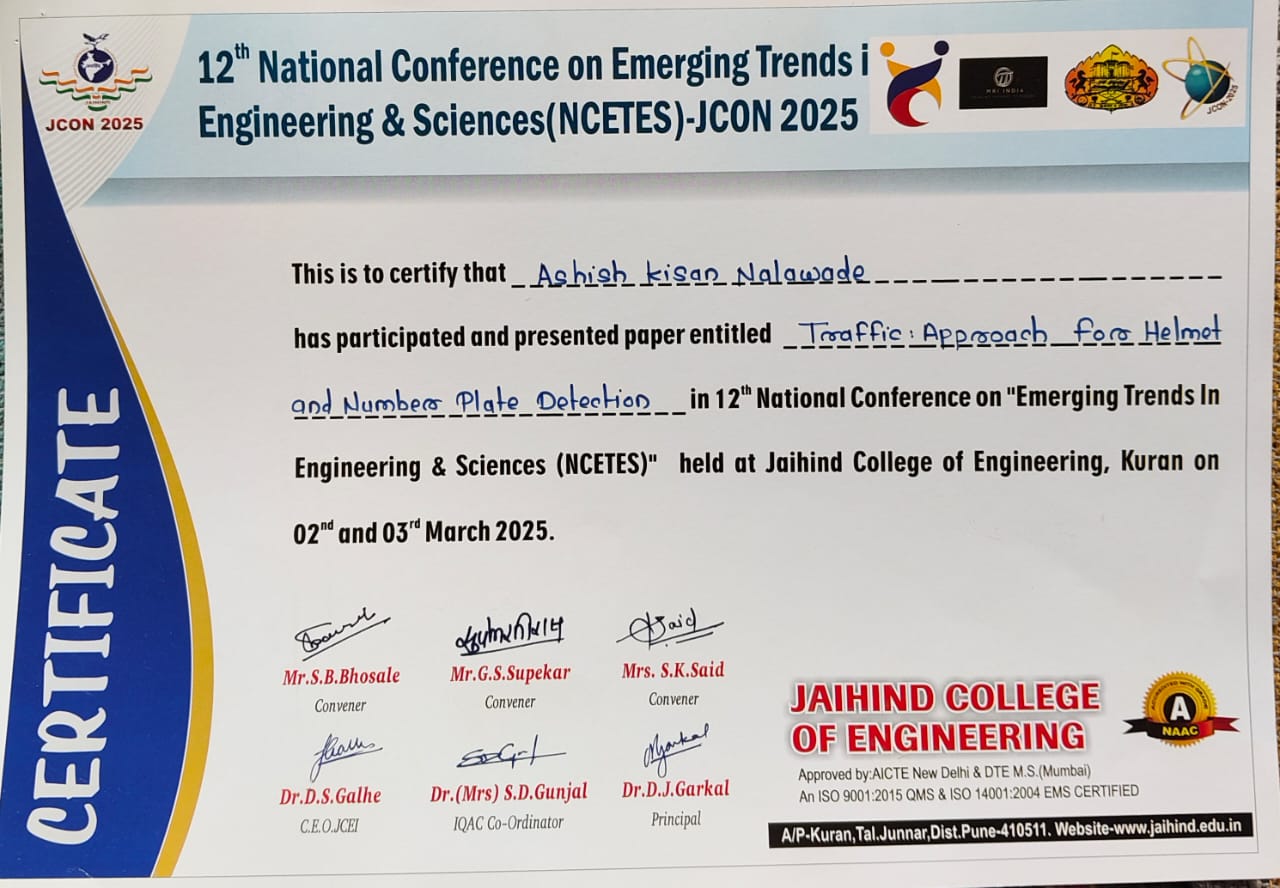 12th National Conference on Emerging Trends i
Engineering & Sciences(NCETES)-JCON 2025
JCON 2025
MRI INDIA
JCON-2025
This is to certify that Ashish Kisan Nalawade
has participated and presented paper entitled Traffic: Approach for Helmet
and Number Plate Detection in 12th National Conference on "Emerging Trends In
Engineering & Sciences (NCETES)" held at Jaihind College of Engineering, Kuran on
02nd and 03rd March 2025.
CERTIFICATE
Mr.S.B.Bhosale
Convener
Mr.G.S.Supekar
Convener
Mrs. S.K.Said
Convener
Dr.D.S.Galhe
C.E.O.JCEI
Dr.(Mrs) S.D.Gunjal
IQAC Co-Ordinator
Dr.D.J.Garkal
Principal
JAIHIND COLLEGE
OF ENGINEERING
ACCREDITED WITH GRADE
A
NAAC
Approved by:AICTE New Delhi & DTE M.S.(Mumbai)
An ISO 9001:2015 QMS & ISO 14001:2004 EMS CERTIFIED
A/P-Kuran,Tal.Junnar,Dist.Pune-410511. Website-www.jaihind.edu.in